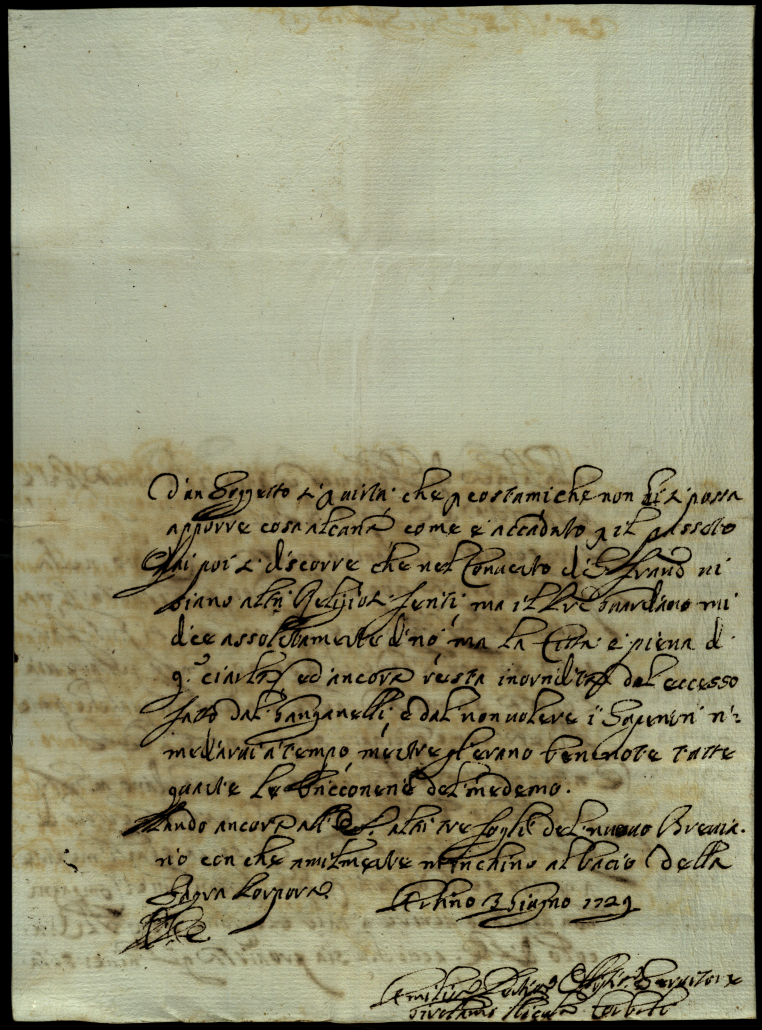 D'un Soggetto di q virtù che p costumi che non li si possa
apporre cosa alcuna come è accaduto p il passato
Qui poi si discorre che nel Convento di S. Franco vi
siano altri Religiosi feriti ma il Pre Guardiano mi
dice assolutamente di nò ma la Città è piena di
q. ciarle, ed ancora resta inorridita del eccesso
fatto dal Ganganelli, e dal non volere i Superiori ri-
mediarvi a tempo, mentre gl'erano bene note tutte
quante le bricconerie del medemo.
Mando ancora all' altri tre fogli del nuovo Brevia-
rio con che umilmente m'inchino al bacio della
Sagra Porpora. Urbino 3 Giugno 1729
Umilis. Servitore
Girolamo